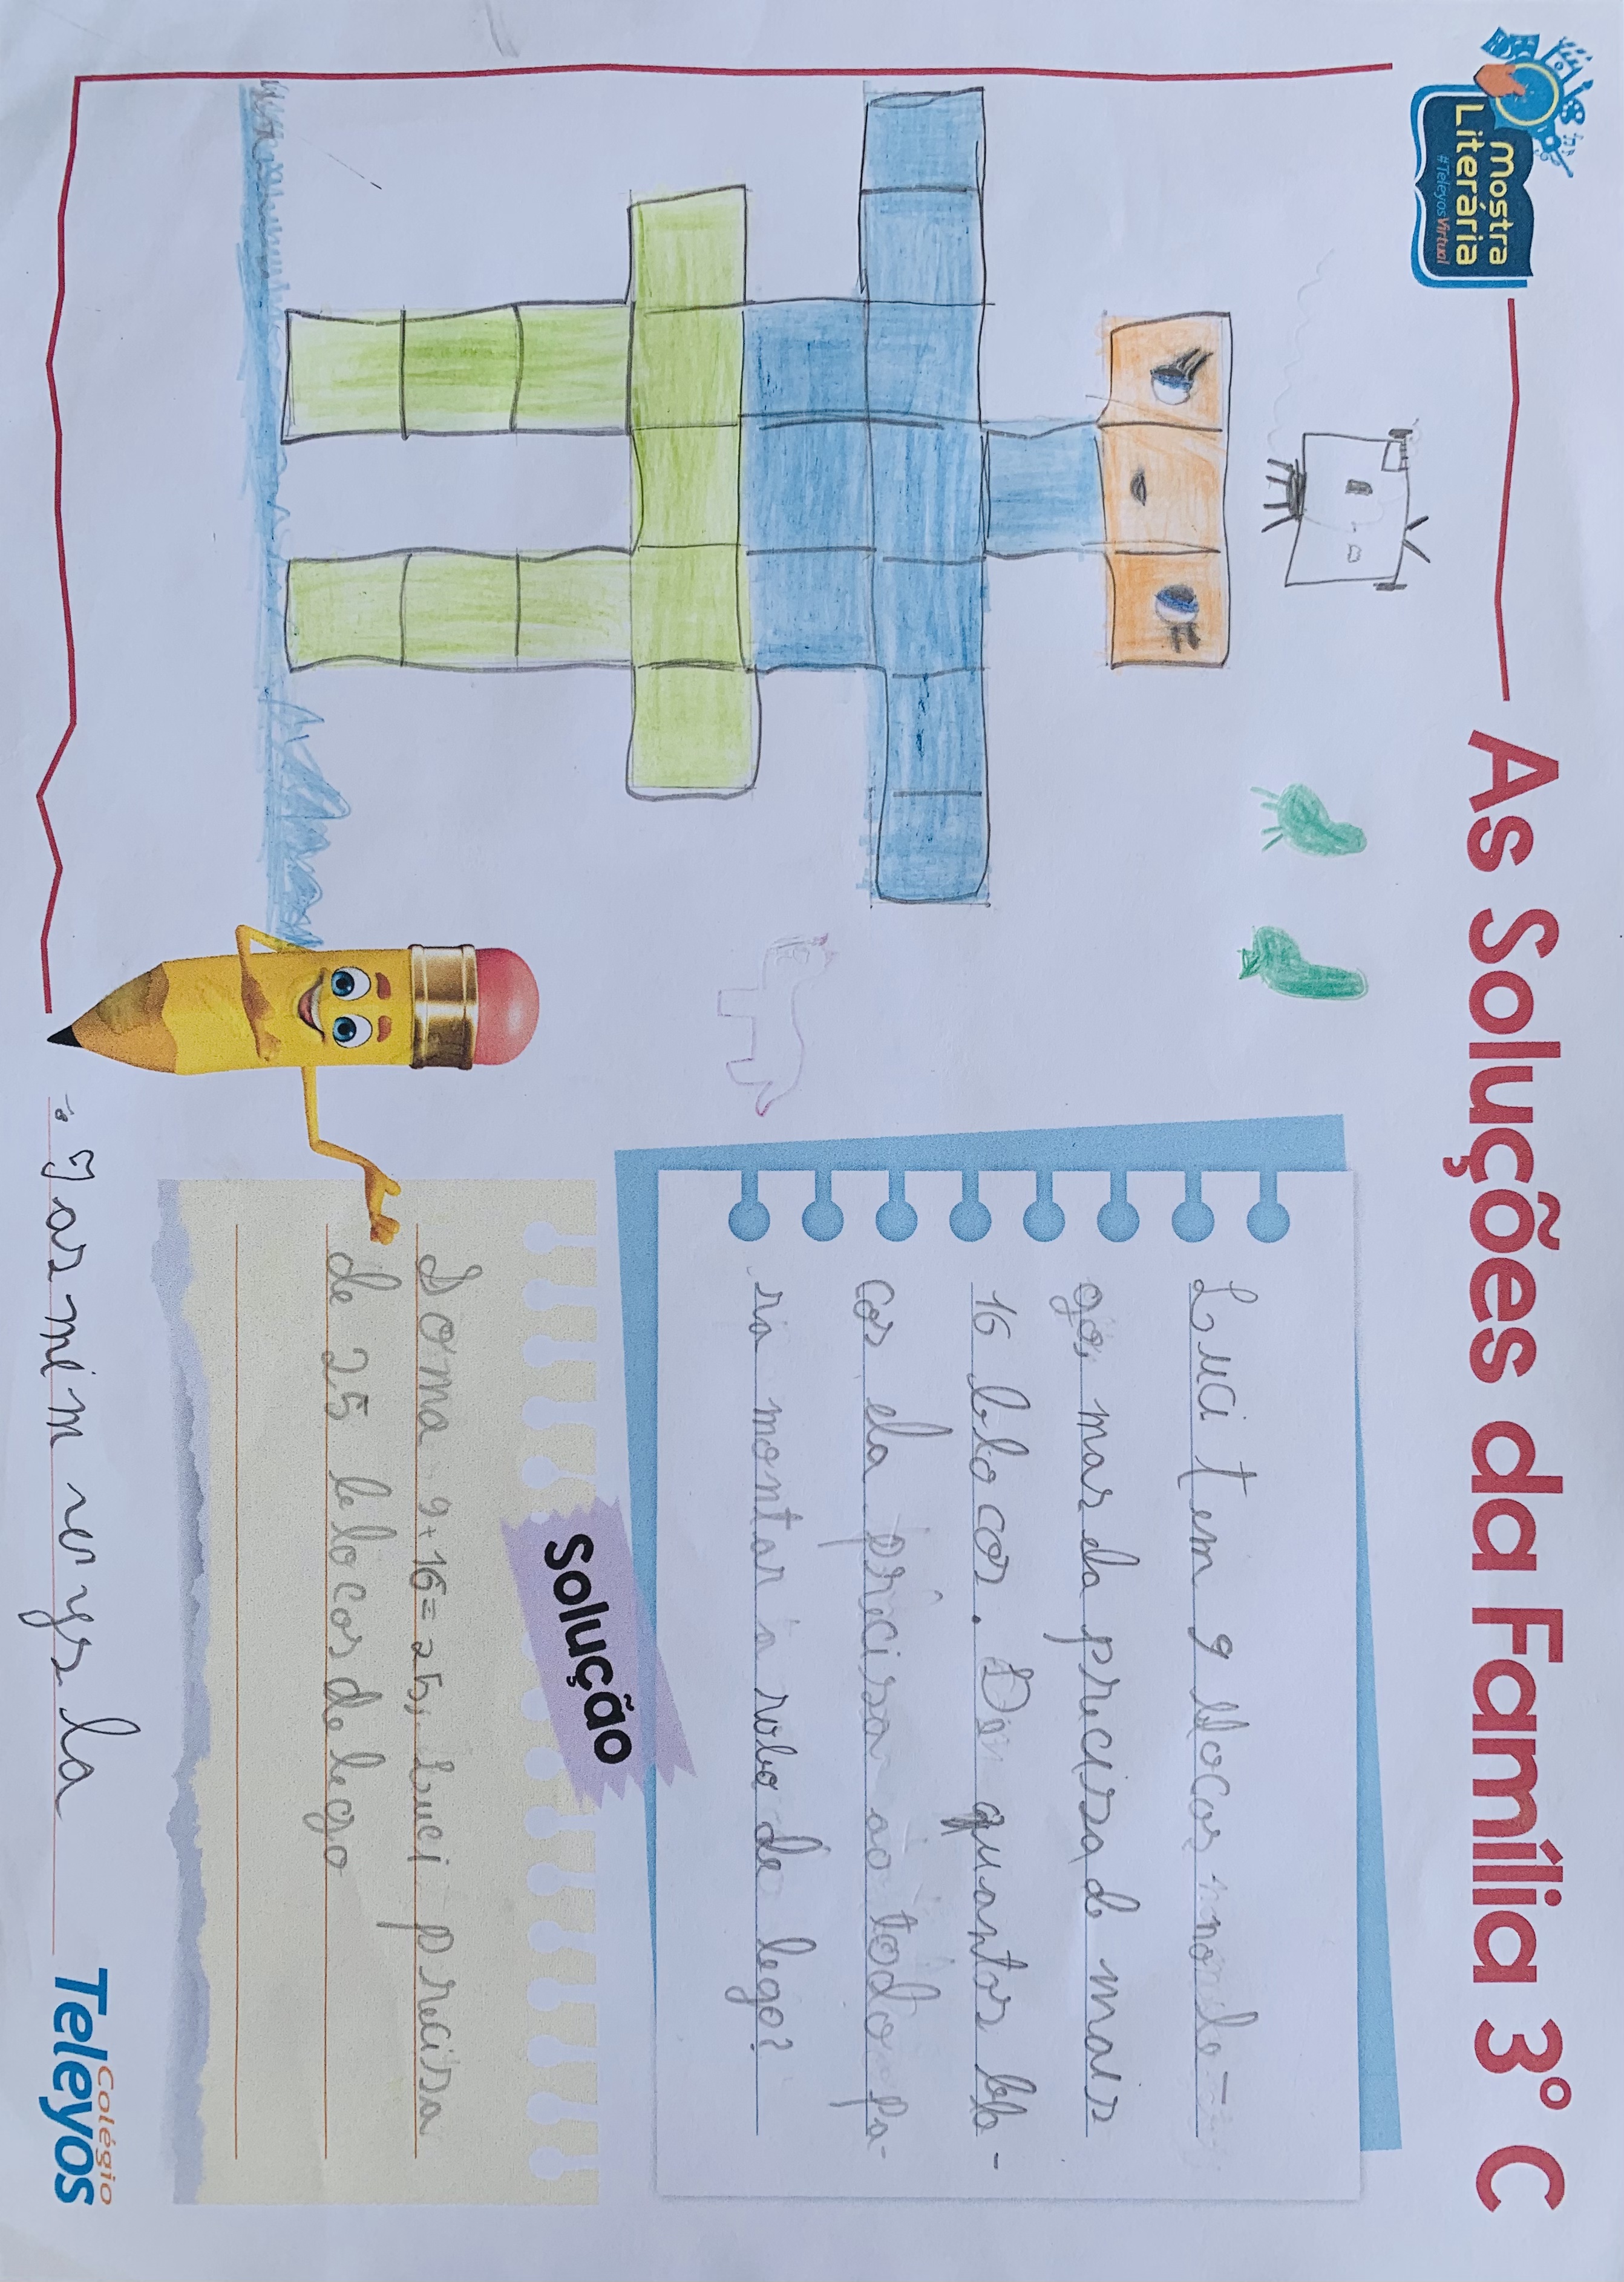 Mostra
Literária
#TeleyosVirtual
As Soluções da Família 3º C
Luci tem 9 blocos no
mas ela precisa de mais
16 blocos. De quantos blo-
cos ela precisa ao todo pa-
ra montar o robo de lego?
Solução
Soma 9+16=25, Luci precisa
de 25 blocos de lego
Colégio
Teleyos